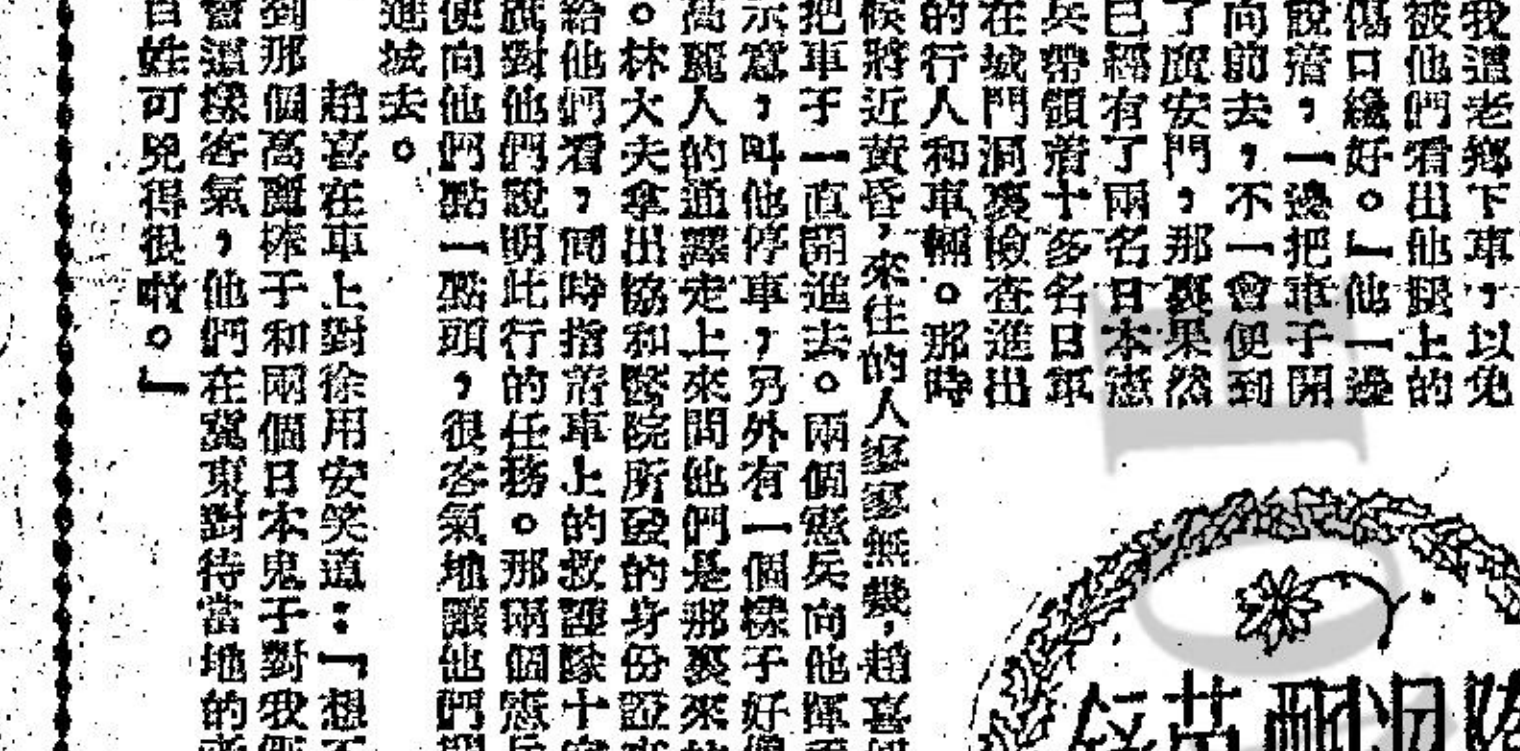 我這老鄉下車，以免
被他們看出他腿上的
傷口縫好。」他一邊
說着，一邊把車子開
向前去，不一會便到
了廣安門，那裏果然
已經有了兩名日本憲
兵帶領着十多名日軍
在城門洞裏檢查進出
的行人和車輛。那時
候將近黃昏，來往的人寥寥無幾，趙喜
把車子一直開進去。兩個憲兵向他揮
示意，叫他停車，另外有一個樣子好
高麗人的通譯走上來問他們是那裏來
。林大夫拿出協和醫院所發的身份證
給他們看，同時指着車上的救護隊十
旗對他們說明此行的任務。那兩個憲兵
便向他們點一點頭，很客氣地讓他們
進城去。
趙喜在車上對徐用安笑道：「想不
到那個高麗棒子和兩個日本鬼子對我
會這樣客氣，他們在冀東對待當地的
百姓可兇得很啦。」